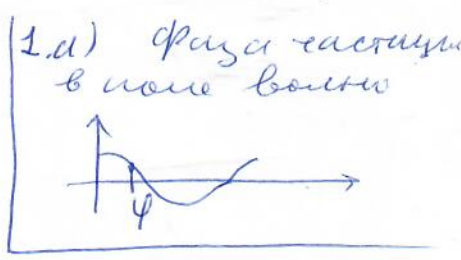 1.а) Фаза частицы
в поле волны
φ